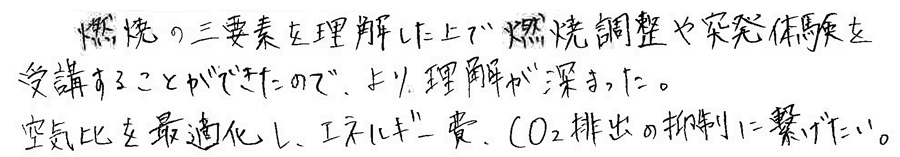 燃焼の三要素を理解した上で燃焼調整や突発体験を
受講することができたので、より理解が深まった。
空気比を最適化し、エネルギー費、CO2排出の抑制に繋げたい。